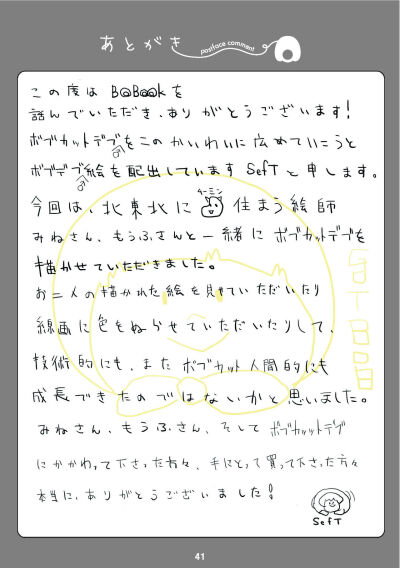 あとがき
postface comment
この度は B@B@@k を
読んでいただき、ありがとうございます!
ボブカットデブをこのかいわいに広めていこうと
ボブデブ絵を配出しています SefT と申します。
チーミン
今回は、北東北に 住まう絵師
みねさん、もうふさんと一緒に ボブカットデブを
描かせていただきました。
お二人の描かれた絵を見せていただいたり
線画に色をぬらせていただいたりして、
技術的にも、また ボブカット人間的にも
成長できたのではないかと思いました。
みねさん、もうふさん、そして ボブカットデブ
にかかわって下さった方々、手にとって買って下さった方々
本当に、ありがとうございました!
SefT
41